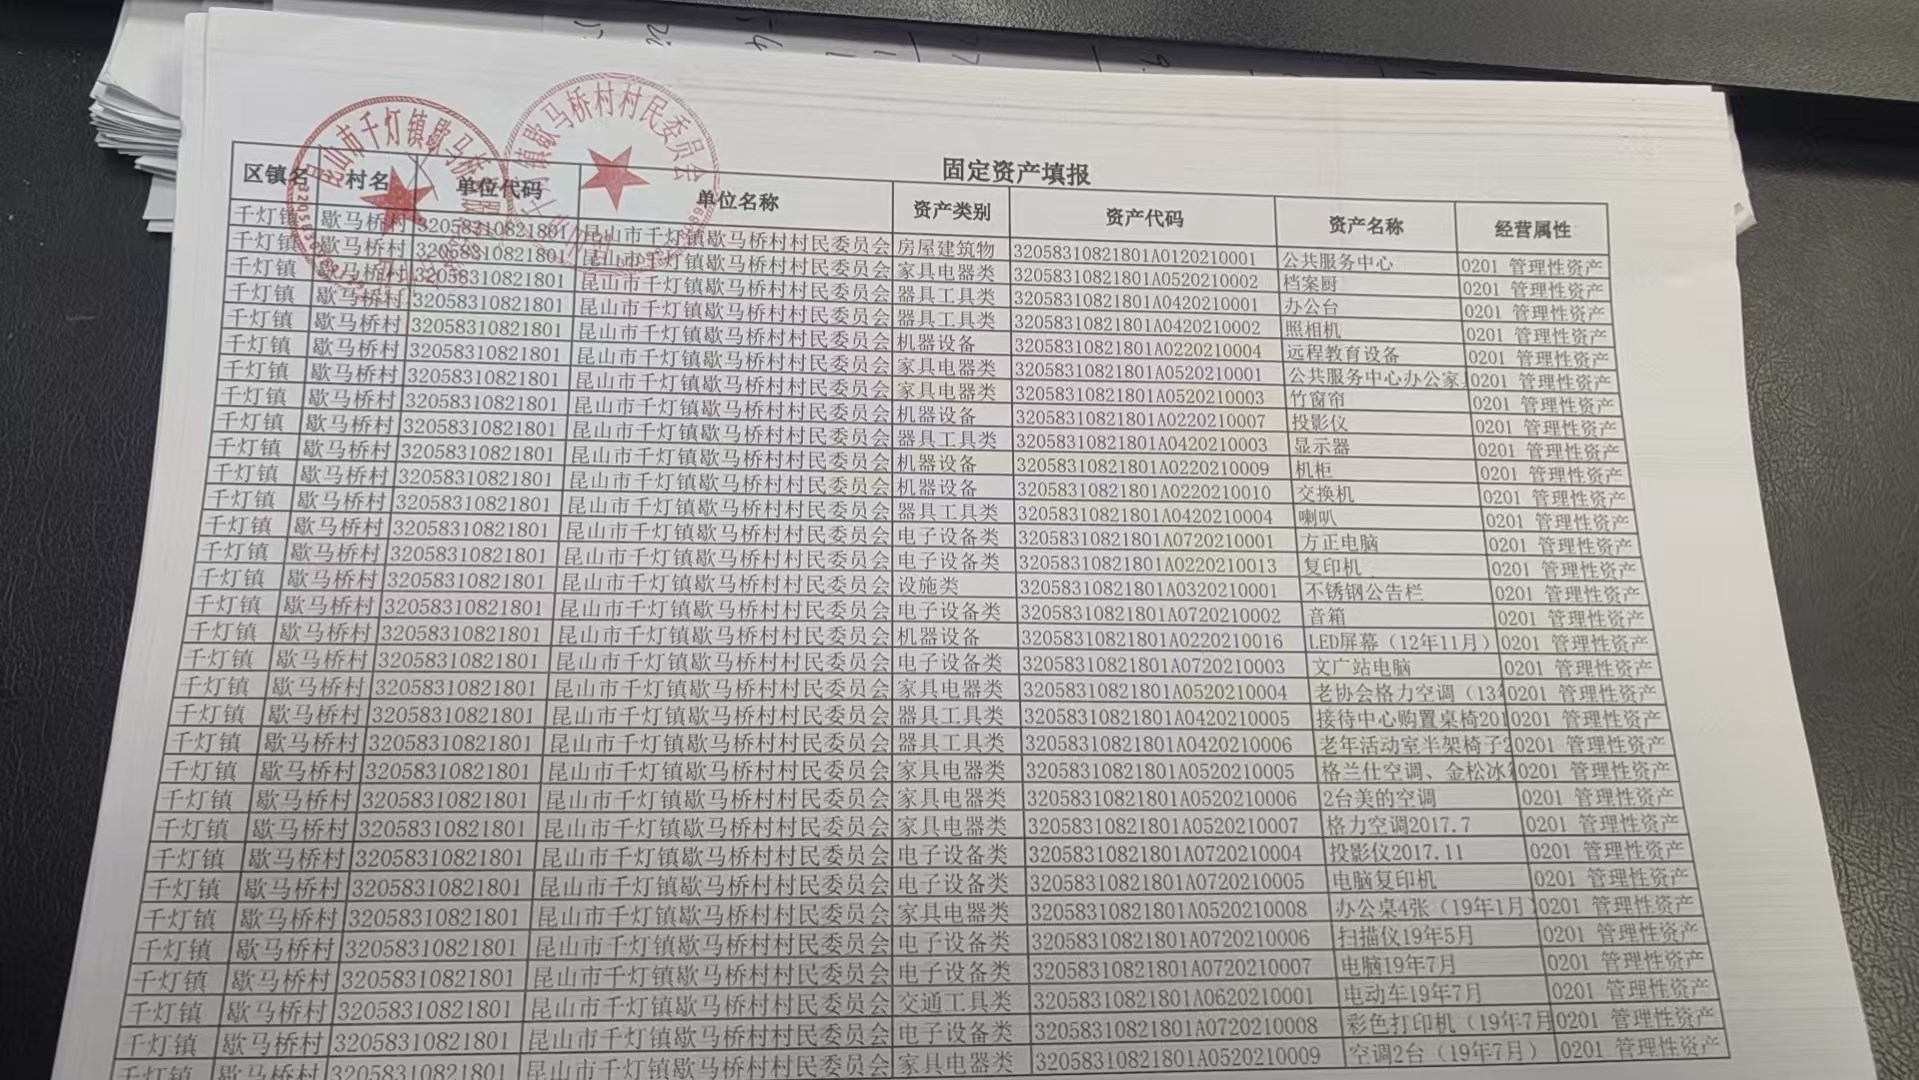 昆山市千灯镇歇马桥
千灯镇歇马桥村村民委员会
固定资产填报
区镇名 村名 单位代码 单位名称 资产类别 资产代码 资产名称 经营属性
千灯镇 歇马桥村 32058310821801 昆山市千灯镇歇马桥村村民委员会 房屋建筑物 32058310821801A0120210001 公共服务中心 0201 管理性资产
千灯镇 歇马桥村 32058310821801 昆山市千灯镇歇马桥村村民委员会 家具电器类 32058310821801A0520210002 档案厨 0201 管理性资产
千灯镇 歇马桥村 32058310821801 昆山市千灯镇歇马桥村村民委员会 器具工具类 32058310821801A0420210001 办公台 0201 管理性资产
千灯镇 歇马桥村 32058310821801 昆山市千灯镇歇马桥村村民委员会 器具工具类 32058310821801A0420210002 照相机 0201 管理性资产
千灯镇 歇马桥村 32058310821801 昆山市千灯镇歇马桥村村民委员会 机器设备 32058310821801A0220210004 远程教育设备 0201 管理性资产
千灯镇 歇马桥村 32058310821801 昆山市千灯镇歇马桥村村民委员会 家具电器类 32058310821801A0520210001 公共服务中心办公家 0201 管理性资产
千灯镇 歇马桥村 32058310821801 昆山市千灯镇歇马桥村村民委员会 家具电器类 32058310821801A0520210003 竹窗帘 0201 管理性资产
千灯镇 歇马桥村 32058310821801 昆山市千灯镇歇马桥村村民委员会 机器设备 32058310821801A0220210007 投影仪 0201 管理性资产
千灯镇 歇马桥村 32058310821801 昆山市千灯镇歇马桥村村民委员会 器具工具类 32058310821801A0420210003 显示器 0201 管理性资产
千灯镇 歇马桥村 32058310821801 昆山市千灯镇歇马桥村村民委员会 机器设备 32058310821801A0220210009 机柜 0201 管理性资产
千灯镇 歇马桥村 32058310821801 昆山市千灯镇歇马桥村村民委员会 机器设备 32058310821801A0220210010 交换机 0201 管理性资产
千灯镇 歇马桥村 32058310821801 昆山市千灯镇歇马桥村村民委员会 器具工具类 32058310821801A0420210004 喇叭 0201 管理性资产
千灯镇 歇马桥村 32058310821801 昆山市千灯镇歇马桥村村民委员会 电子设备类 32058310821801A0720210001 方正电脑 0201 管理性资产
千灯镇 歇马桥村 32058310821801 昆山市千灯镇歇马桥村村民委员会 电子设备类 32058310821801A0220210013 复印机 0201 管理性资产
千灯镇 歇马桥村 32058310821801 昆山市千灯镇歇马桥村村民委员会 设施类 32058310821801A0320210001 不锈钢公告栏 0201 管理性资产
千灯镇 歇马桥村 32058310821801 昆山市千灯镇歇马桥村村民委员会 电子设备类 32058310821801A0720210002 音箱 0201 管理性资产
千灯镇 歇马桥村 32058310821801 昆山市千灯镇歇马桥村村民委员会 机器设备 32058310821801A0220210016 LED屏幕（12年11月） 0201 管理性资产
千灯镇 歇马桥村 32058310821801 昆山市千灯镇歇马桥村村民委员会 电子设备类 32058310821801A0720210003 文广站电脑 0201 管理性资产
千灯镇 歇马桥村 32058310821801 昆山市千灯镇歇马桥村村民委员会 家具电器类 32058310821801A0520210004 老协会格力空调（13 0201 管理性资产
千灯镇 歇马桥村 32058310821801 昆山市千灯镇歇马桥村村民委员会 器具工具类 32058310821801A0420210005 接待中心购置桌椅201 0201 管理性资产
千灯镇 歇马桥村 32058310821801 昆山市千灯镇歇马桥村村民委员会 器具工具类 32058310821801A0420210006 老年活动室半架椅子 0201 管理性资产
千灯镇 歇马桥村 32058310821801 昆山市千灯镇歇马桥村村民委员会 家具电器类 32058310821801A0520210005 格兰仕空调、金松冰 0201 管理性资产
千灯镇 歇马桥村 32058310821801 昆山市千灯镇歇马桥村村民委员会 家具电器类 32058310821801A0520210006 2台美的空调 0201 管理性资产
千灯镇 歇马桥村 32058310821801 昆山市千灯镇歇马桥村村民委员会 家具电器类 32058310821801A0520210007 格力空调2017.7 0201 管理性资产
千灯镇 歇马桥村 32058310821801 昆山市千灯镇歇马桥村村民委员会 电子设备类 32058310821801A0720210004 投影仪2017.11 0201 管理性资产
千灯镇 歇马桥村 32058310821801 昆山市千灯镇歇马桥村村民委员会 电子设备类 32058310821801A0720210005 电脑复印机 0201 管理性资产
千灯镇 歇马桥村 32058310821801 昆山市千灯镇歇马桥村村民委员会 家具电器类 32058310821801A0520210008 办公桌4张（19年1月） 0201 管理性资产
千灯镇 歇马桥村 32058310821801 昆山市千灯镇歇马桥村村民委员会 电子设备类 32058310821801A0720210006 扫描仪19年5月 0201 管理性资产
千灯镇 歇马桥村 32058310821801 昆山市千灯镇歇马桥村村民委员会 电子设备类 32058310821801A0720210007 电脑19年7月 0201 管理性资产
千灯镇 歇马桥村 32058310821801 昆山市千灯镇歇马桥村村民委员会 交通工具类 32058310821801A0620210001 电动车19年7月 0201 管理性资产
千灯镇 歇马桥村 32058310821801 昆山市千灯镇歇马桥村村民委员会 电子设备类 32058310821801A0720210008 彩色打印机（19年7月 0201 管理性资产
千灯镇 歇马桥村 32058310821801 昆山市千灯镇歇马桥村村民委员会 家具电器类 32058310821801A0520210009 空调2台（19年7月） 0201 管理性资产